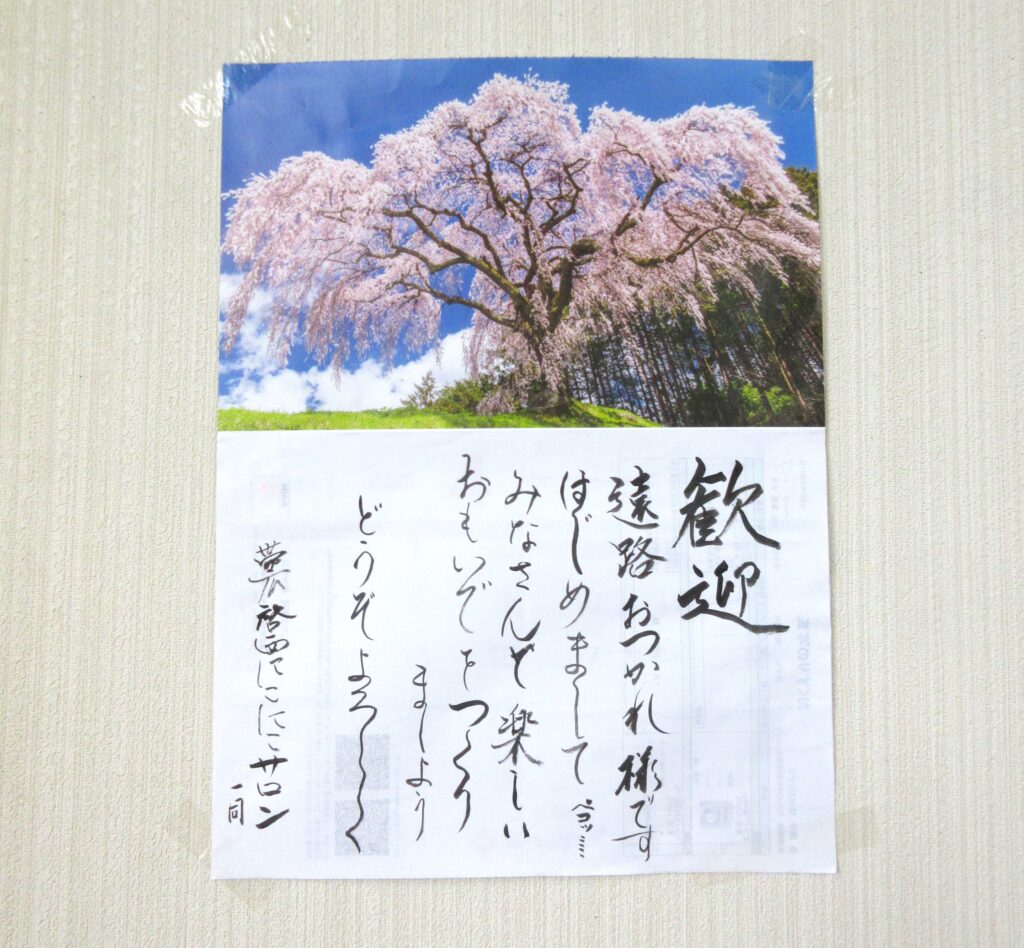 歓迎
遠路おつかれ様です
はじめまして ペコッ
みなさんと楽しい
おもいでをつくり
ましょう
どうぞよろしく
西にこにこサロン
一同